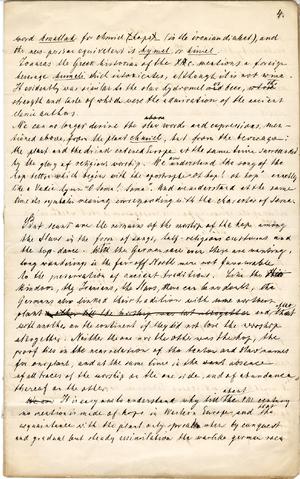 4.
word smallah for chmiel (hops) (in the iranian dialect), and
the new-persian equivalent is hymel, or himel.
Zoanras the Greek historian of the XII c. mentions a foreign
beverage humeli which intoxicates, although it is not wine.
It evidently was similar to the slav hydromel and beer, the
strength and taste of which were the admiration of the ancient
chroniclers.
We can as regards derive the slav words and expressions, men-
tioned above, from the plant chmiel, but from the beverage:
the plant and the drink entered Europe at the same time surrounded
by the glory of religious worship. We understand the song of the
hop better which begins with the apostrophe "oh hop! oh hop" exactly
like a Vedic hymn "O Soma! Soma". And we understand at the same
time its symbolic meaning corresponding with the character of Soma.
But scant are the remains of the worship of the hop among
the Slavs in the form of songs, half-religious customs and
the hop-dance. With the Germans even these are wanting.
Long wanderings in the far off North were not favourable
to the preservation of ancient traditions. Like the
Hindoos, the Iranians, the Slavs, there can be no doubt, the
Germans also linked their tradition with some northern
plant and then
with another on the continent if they did not lose the worship
altogether. Neither the one nor the other was the hop, the
proof lies in the near relation of the German and Slav names
for one plant, and at the same time in the absence
of all traces of the worship on the one side, and of abundance
thereof on the other.
It is easy to understand why till the VIII century
no mention is made of hops in Western Europe, and that
acquaintance with the plant only spreads there by conquest
and gradual but steady assimilation the warlike german race